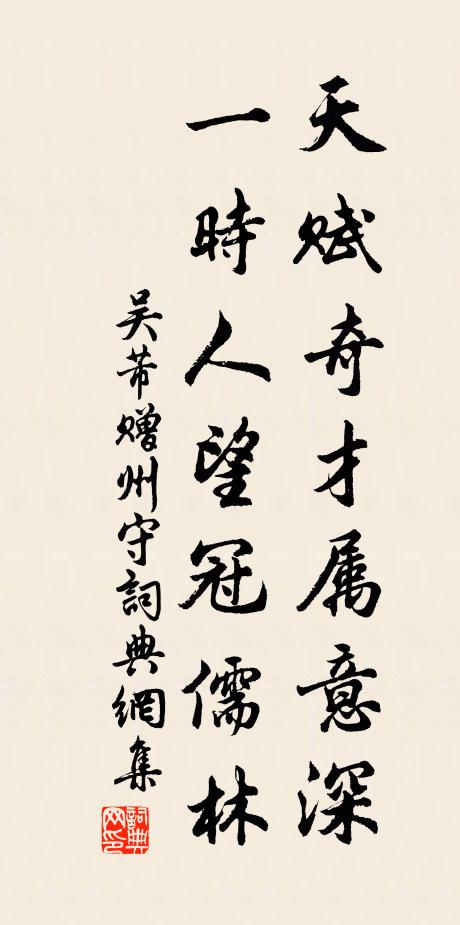 天赋奇才属意深
一時人望冠儒林
吴芾赠州守詞典網集
詞典網印